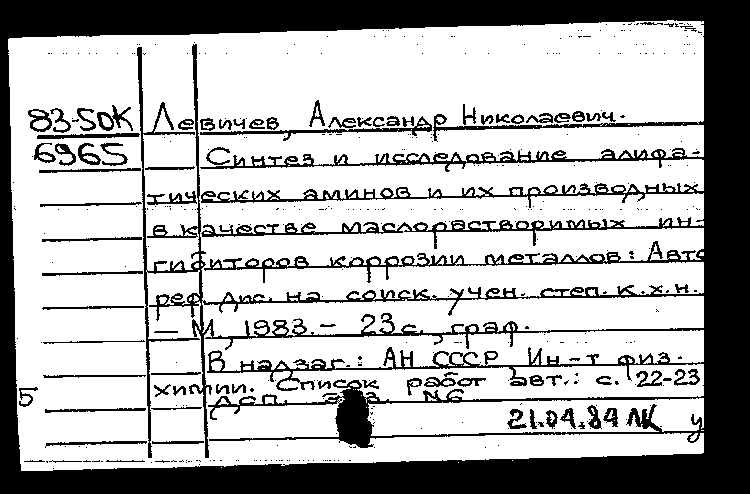 83-5ОК Левичев, Александр Николаевич.
6965 Синтез и исследование алифа-
тических аминов и их производных
в качестве маслорастворимых ин-
гибиторов коррозии металлов: Авто
реф. дис. на соиск. учен. степ. к.х.н.
— М., 1983. — 23 с., граф.
В надзаг.: АН СССР, Ин-т физ.
химии. Список работ авт.: с. 22-23
5
ДСП. экз. №6
21.04.84 ЛК у